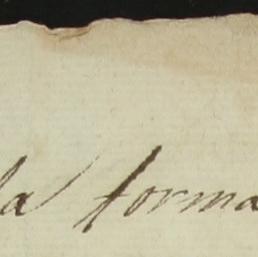 la forma